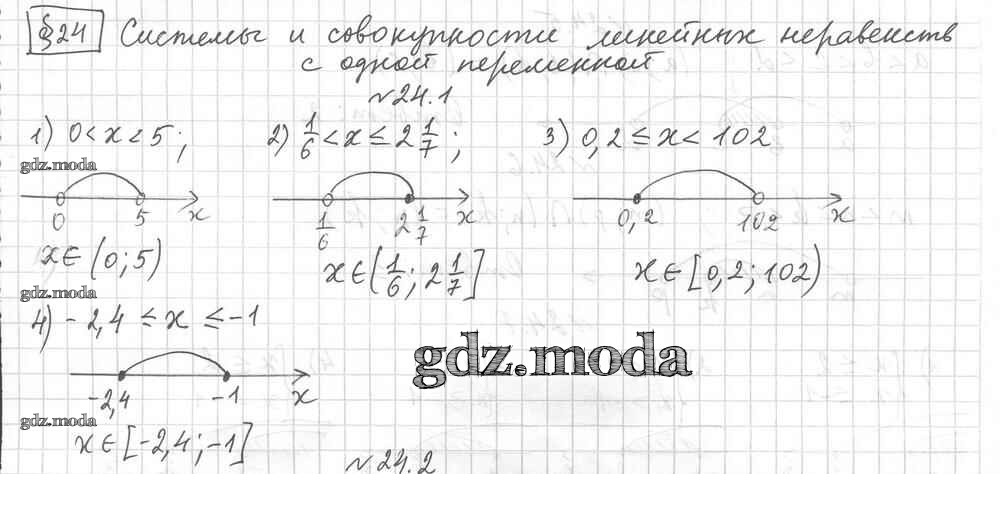 §24 Системы и совокупности линейных неравенств
с одной переменной
№24.1
1) 0 < x < 5; 2) 1/6 < x ≤ 2 1/7; 3) 0,2 ≤ x < 102
gdz.moda
0 5 x 1/6 2 1/7 x 0,2 102 x
x ∈ (0; 5) x ∈ (1/6; 2 1/7] x ∈ [0,2; 102)
gdz.moda
4) -2,4 ≤ x ≤ -1
gdz.moda
-2,4 -1 x
gdz.moda
x ∈ [-2,4; -1]
№24.2